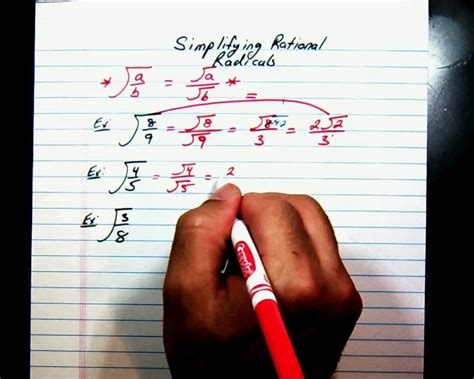 Simplifying Rational
Radicals
* √a/b = √a/√b * =
Ex: √8/9 = √8/√9 = √8/3 = 2√2/3
Ex: √4/5 = √4/√5 = 2
Ex: √3/8